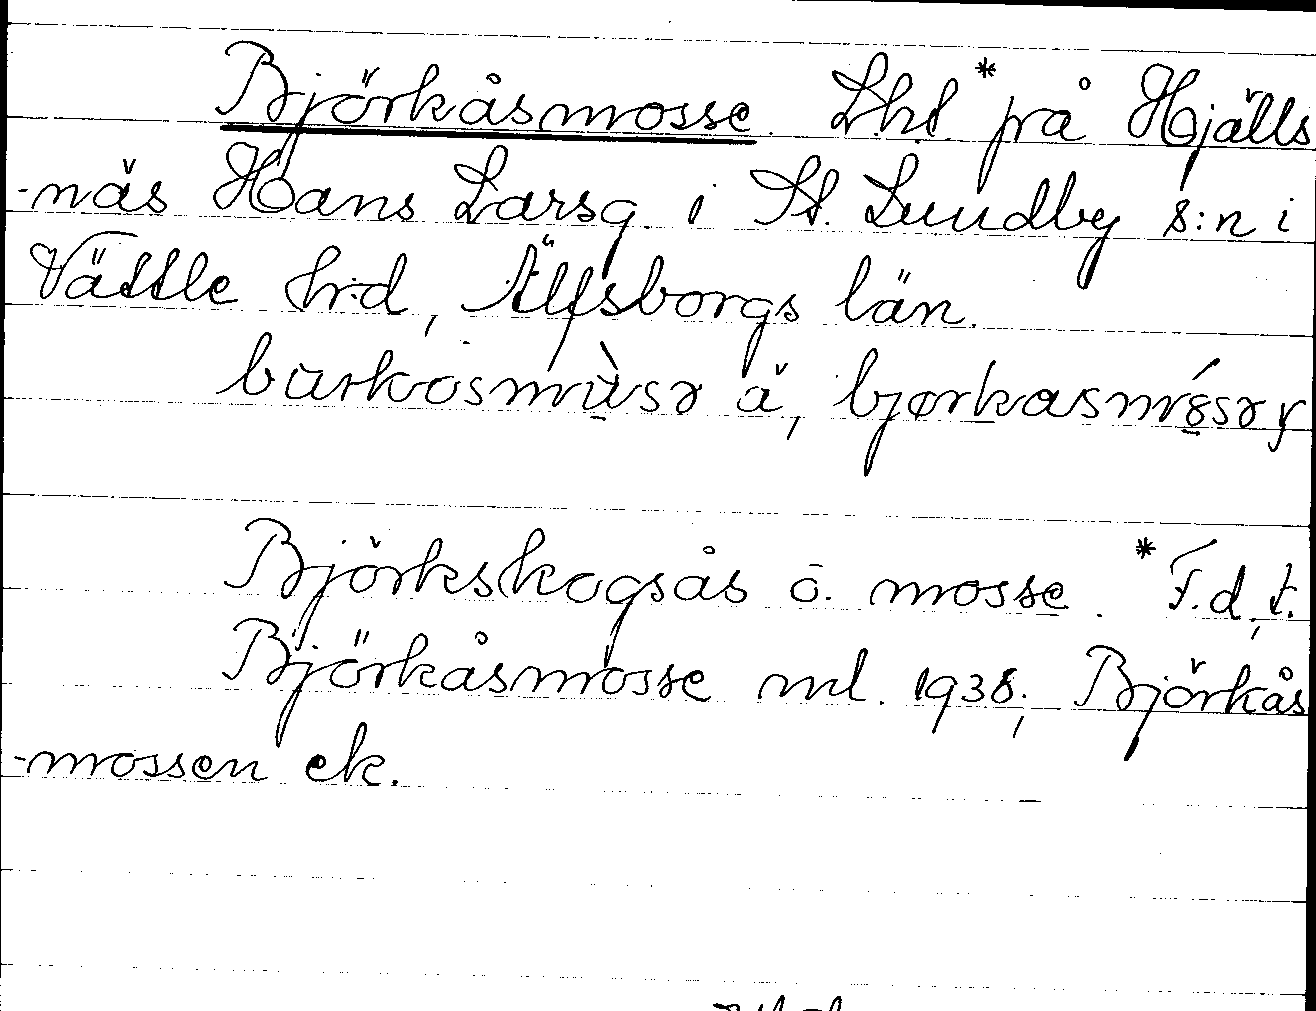 Björkåsmosse. Lht.* på Hjälls
-näs Hans Larsg. i St. Lundby s:n i
Vättle h:d, Älfsborgs län.
burkosmùsɘ ä, bjørkasmósɘ y
Björkskogsås o. mosse. *F.d.t.
Björkåsmosse ml. 1938; Björkås
-mossen ek.